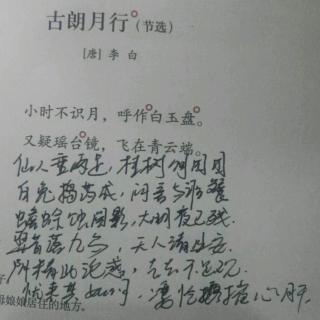 古朗月行(节选)
[唐] 李白
小时不识月，呼作白玉盘。
又疑瑶台镜，飞在青云端。
仙人垂两足，桂树何团团
白兔捣药成，问言与谁餐
蟾蜍蚀圆影，大明夜已残.
羿昔落九乌，天人清且安
阴精此沦惑，去去不足观.
忧来其如何，凄怆摧心肝.
母娘娘居住的地方。